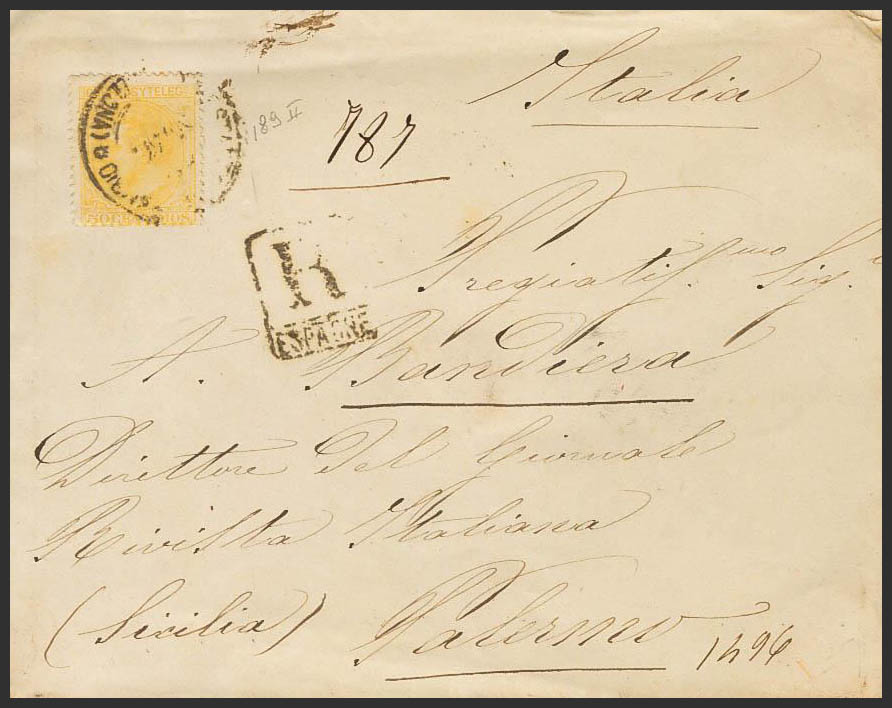 Italia
189 II
787
R
ESPAGNE
Pregiatiss.mo Sig.
A. Bandiera
Direttore del Giornale
Rivista Italiana
(Sicilia) Palermo
1496